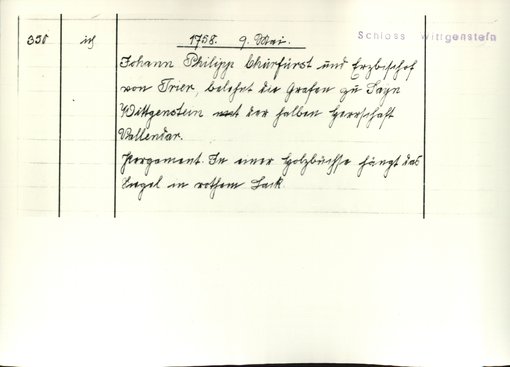 350
1758. 9. Mai.
Schloss Wittgenstein
Johann Philipp Churfürst und Erzbischof
von Trier, belehnt die Grafen zu Sayn
Wittgenstein mit der halben Herrschaft
Vallendar.
Pergament. In einer Holzbüchse hängt das
Siegel in rothem Lack.